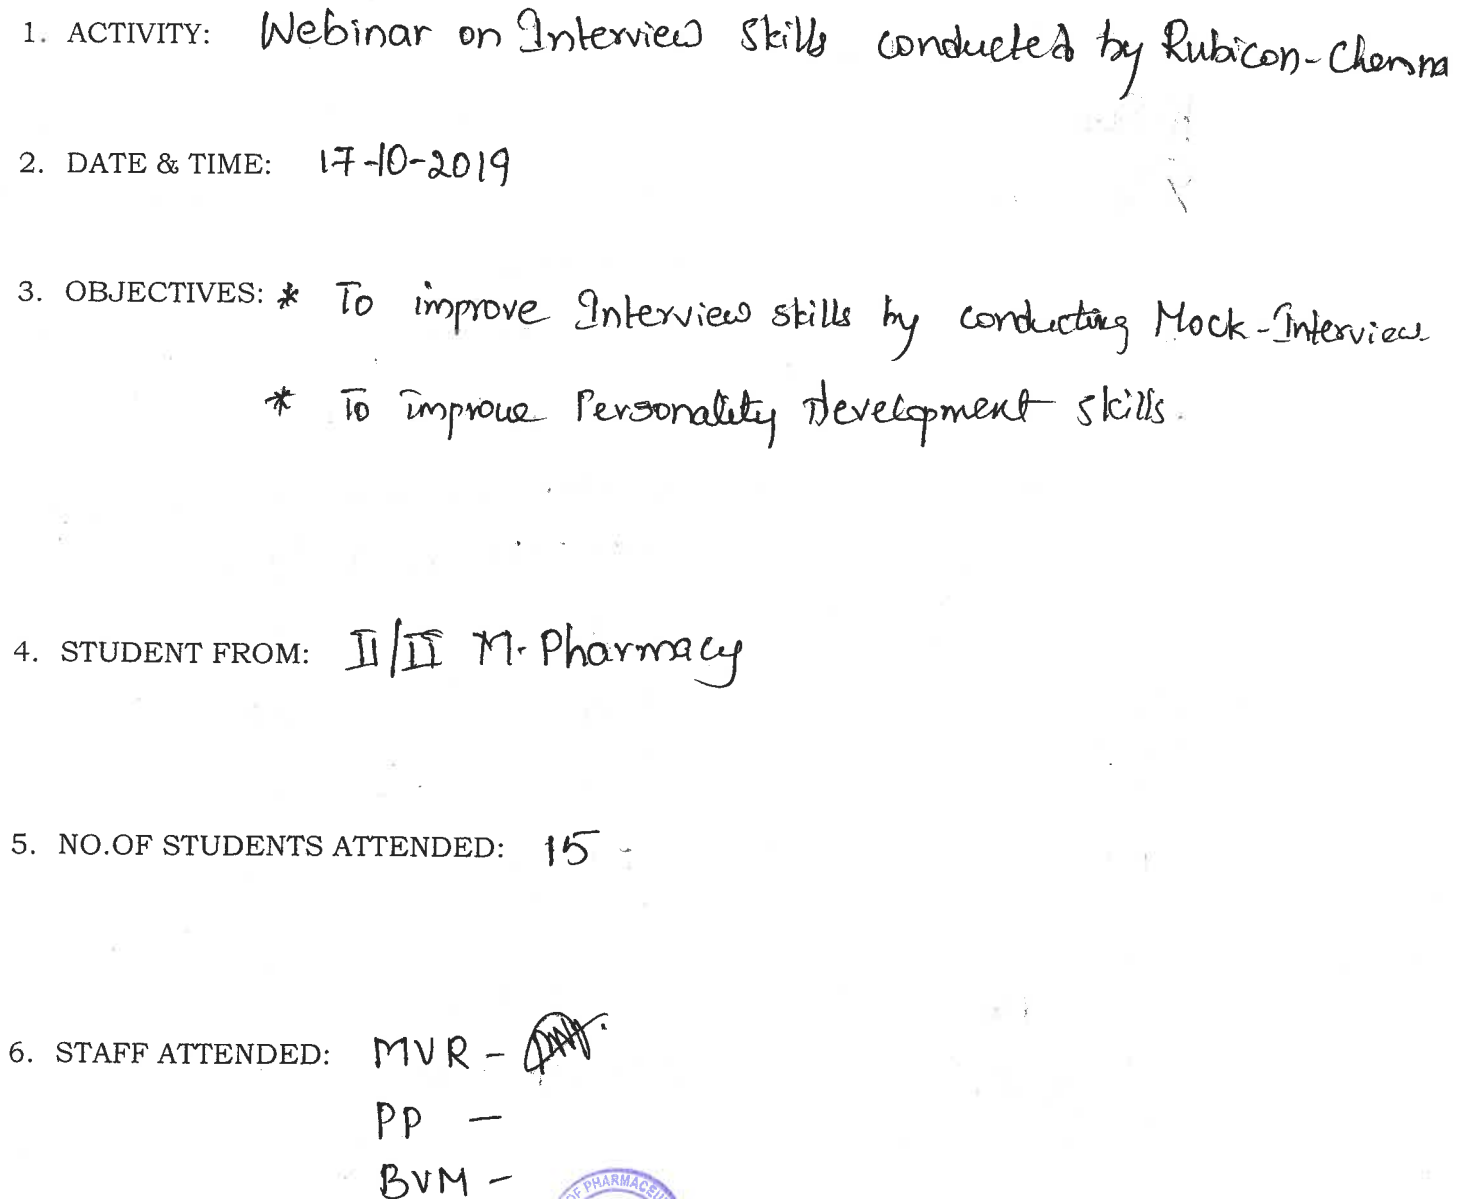 1. ACTIVITY: Webinar on Interview Skills conducted by Rubicon-Chenna
2. DATE & TIME: 17-10-2019
3. OBJECTIVES: * To improve Interview skills by conducting Mock-Interview
* To improve Personality Development skills.
4. STUDENT FROM: II/II M. Pharmacy
5. NO.OF STUDENTS ATTENDED: 15
6. STAFF ATTENDED: MVR -
PP -
BVM -
OF PHARMACEU